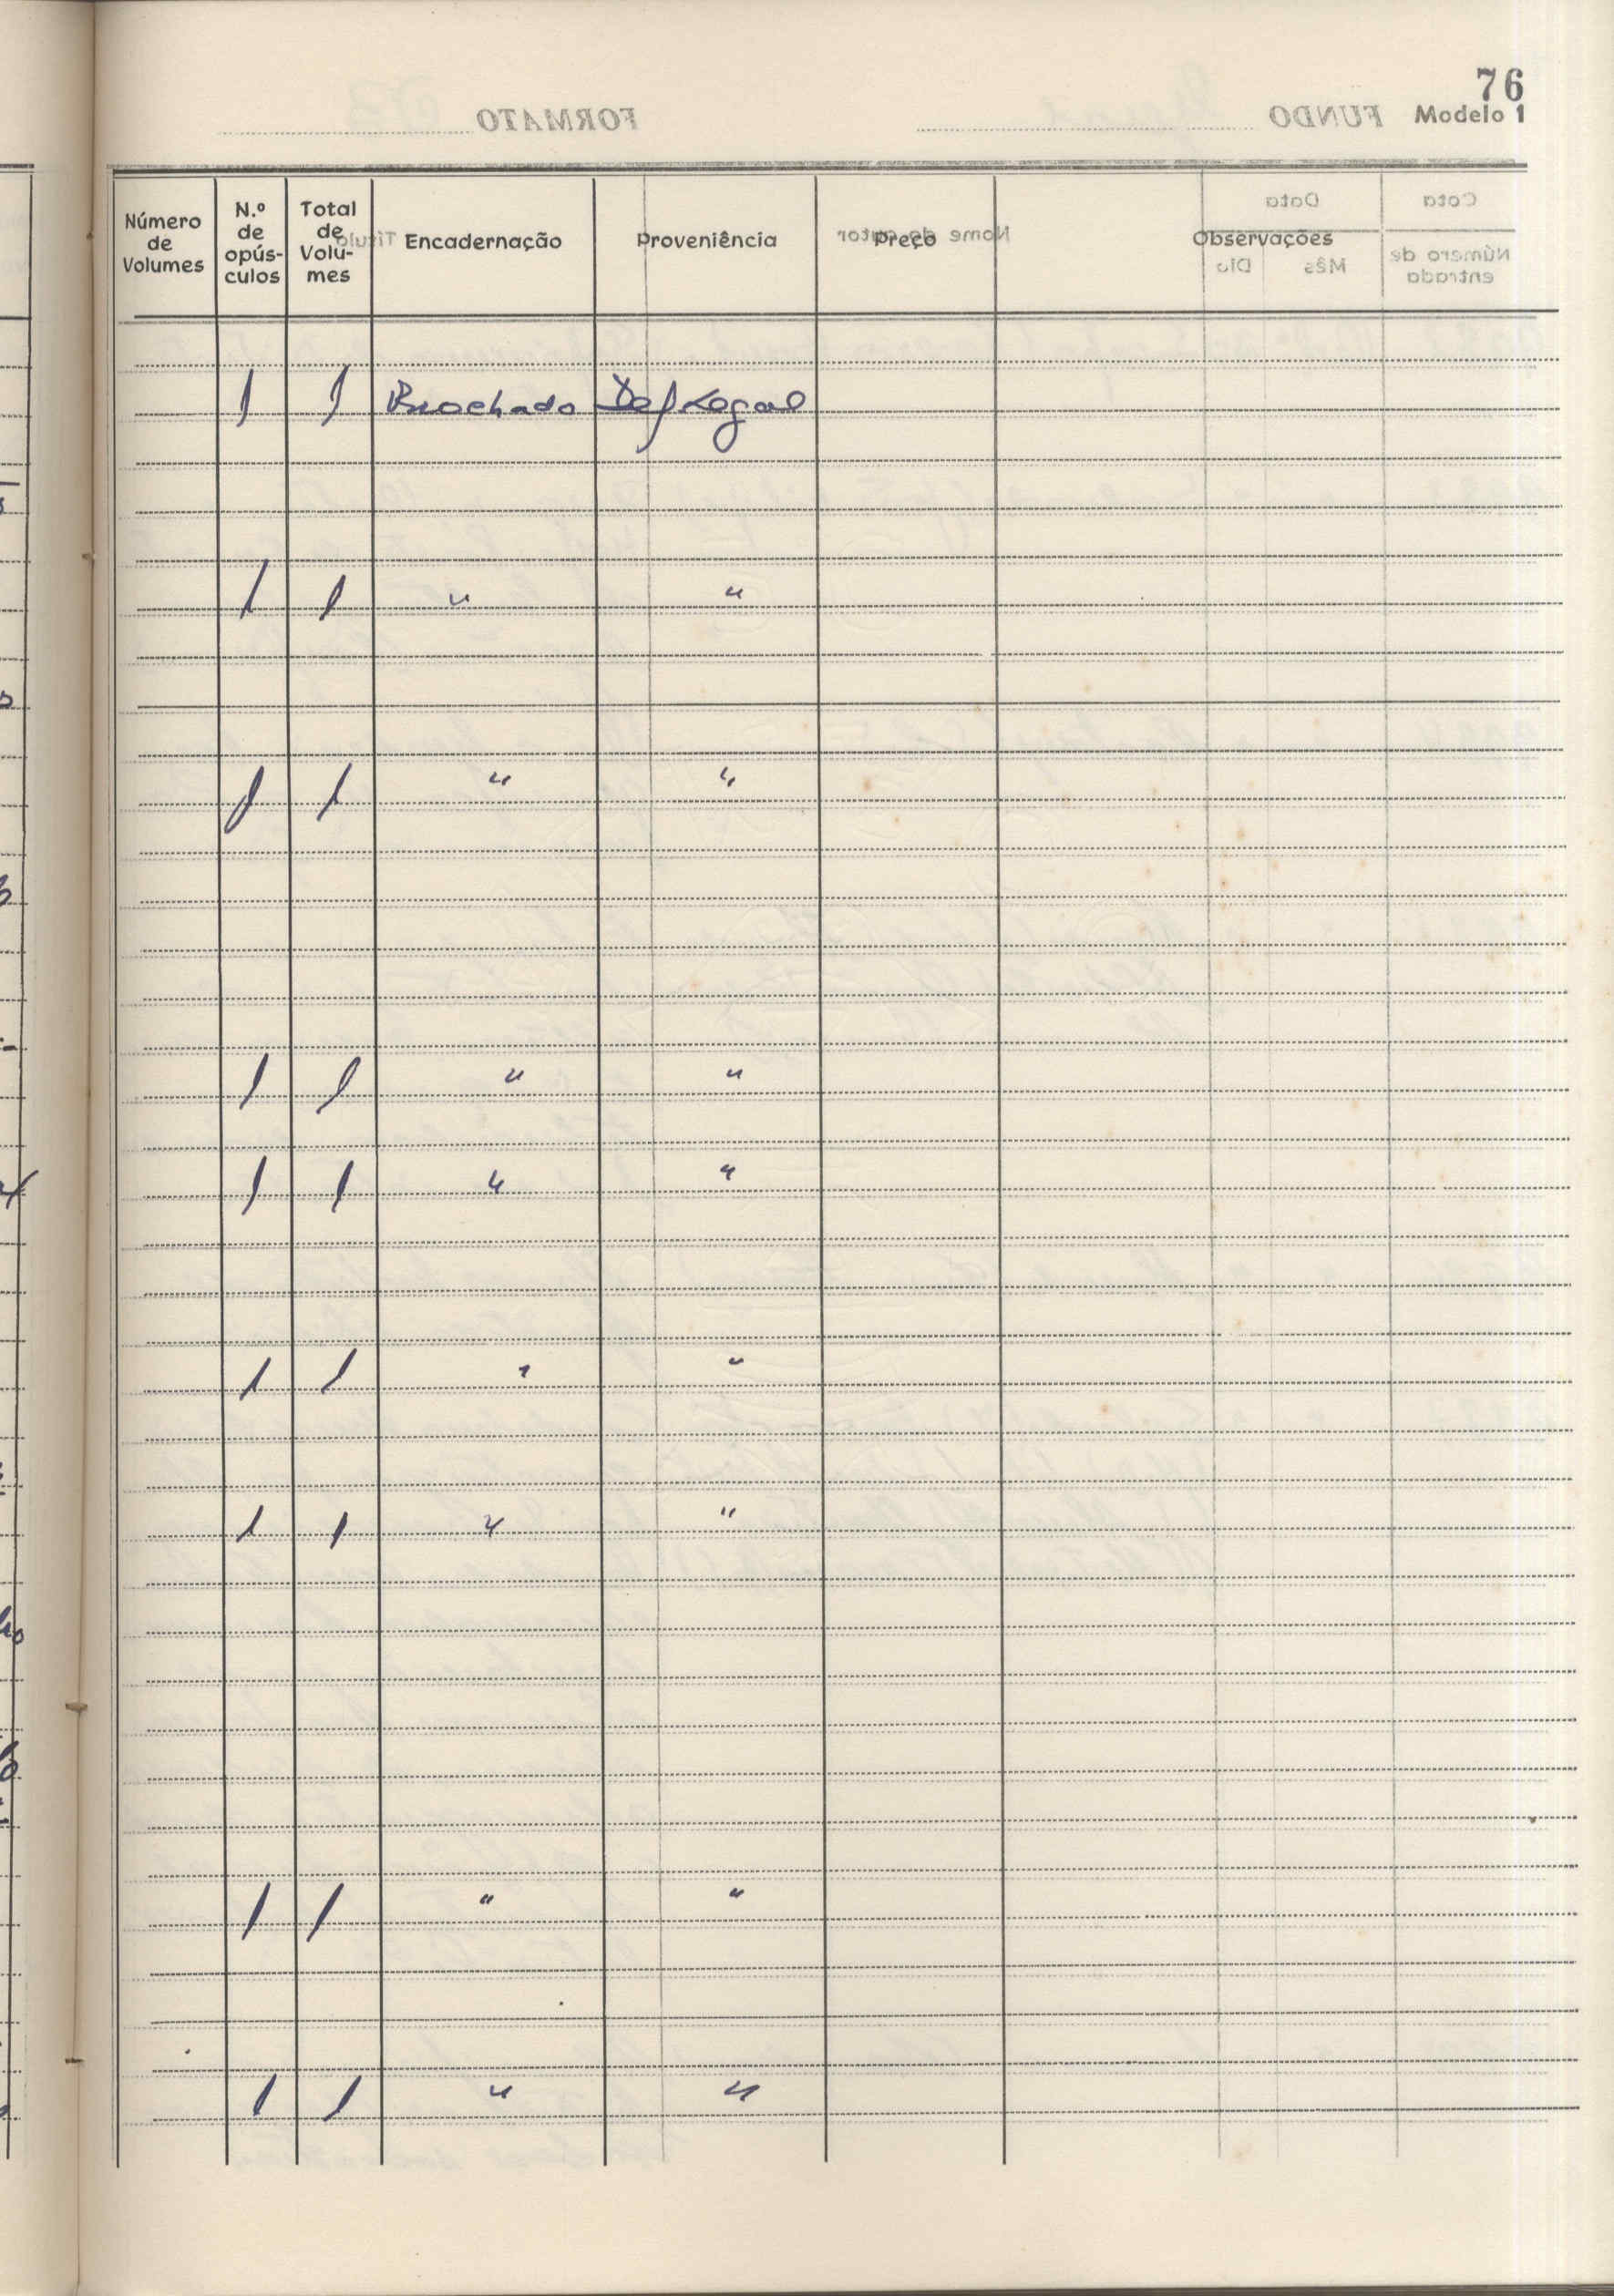 76
Modelo 1
Número de Volumes | N.º de opús-culos | Total de Volu-mes | Encadernação | Proveniência | Preço | Observações
1 | 1 | Brochado | Dep Legal
1 | 1 | " | "
1 | 1 | " | "
1 | 1 | " | "
1 | 1 | " | "
1 | 1 | " | "
1 | 1 | " | "
1 | 1 | " | "
1 | 1 | " | "